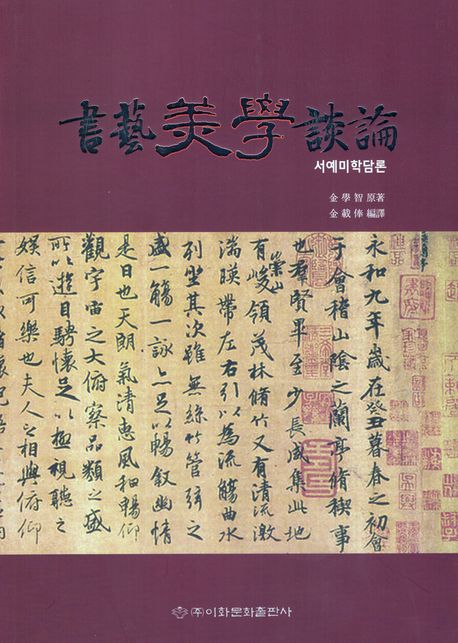 書藝美學談論
서예미학담론
金學智 原著
金載俸 編譯
永和九年歲在癸丑暮春之初會
于會稽山陰之蘭亭脩稧事
也羣賢畢至少長咸集此地
有崇山峻領茂林脩竹又有清流激
湍暎帶左右引以為流觴曲水
列坐其次雖無絲竹管弦之
盛一觴一詠亦足以暢敘幽情
是日也天朗氣清惠風和暢仰
觀宇宙之大俯察品類之盛
所以遊目騁懷足以極視聽之
娛信可樂也夫人之相與俯仰
(주)이화문화출판사